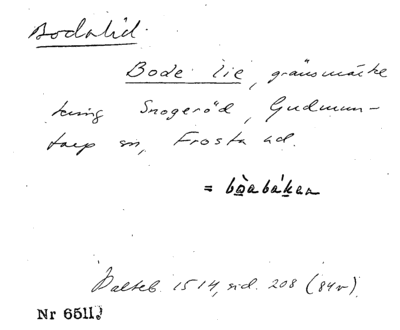 Bodalid.
Bode lie, gränsmärke
kring Snogeröd, Gudmun-
tarp sn, Frosta hd.
= bòabákan
Palteb. 1514, sid. 208 (84v)
Nr 6511.